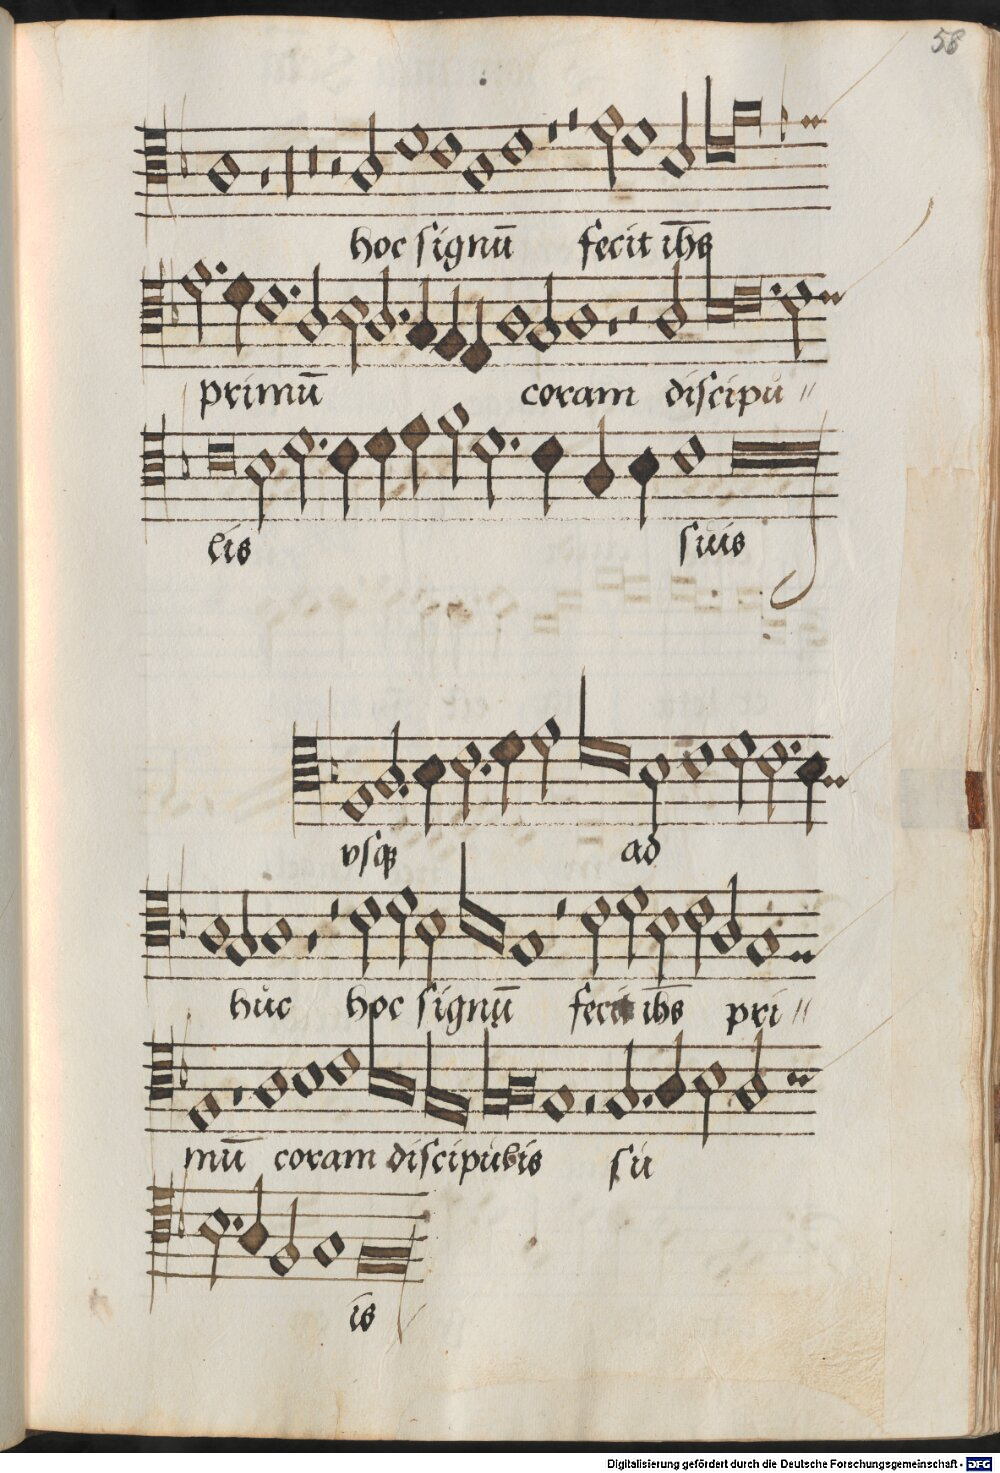 58
hoc signū fecit ih̄s
primū coram discipu〃
lis suis
vsqꝫ ad
huc hoc signū fecit ih̄s pri〃
mū coram discipulis su
is
Digitalisierung gefördert durch die Deutsche Forschungsgemeinschaft - DFG